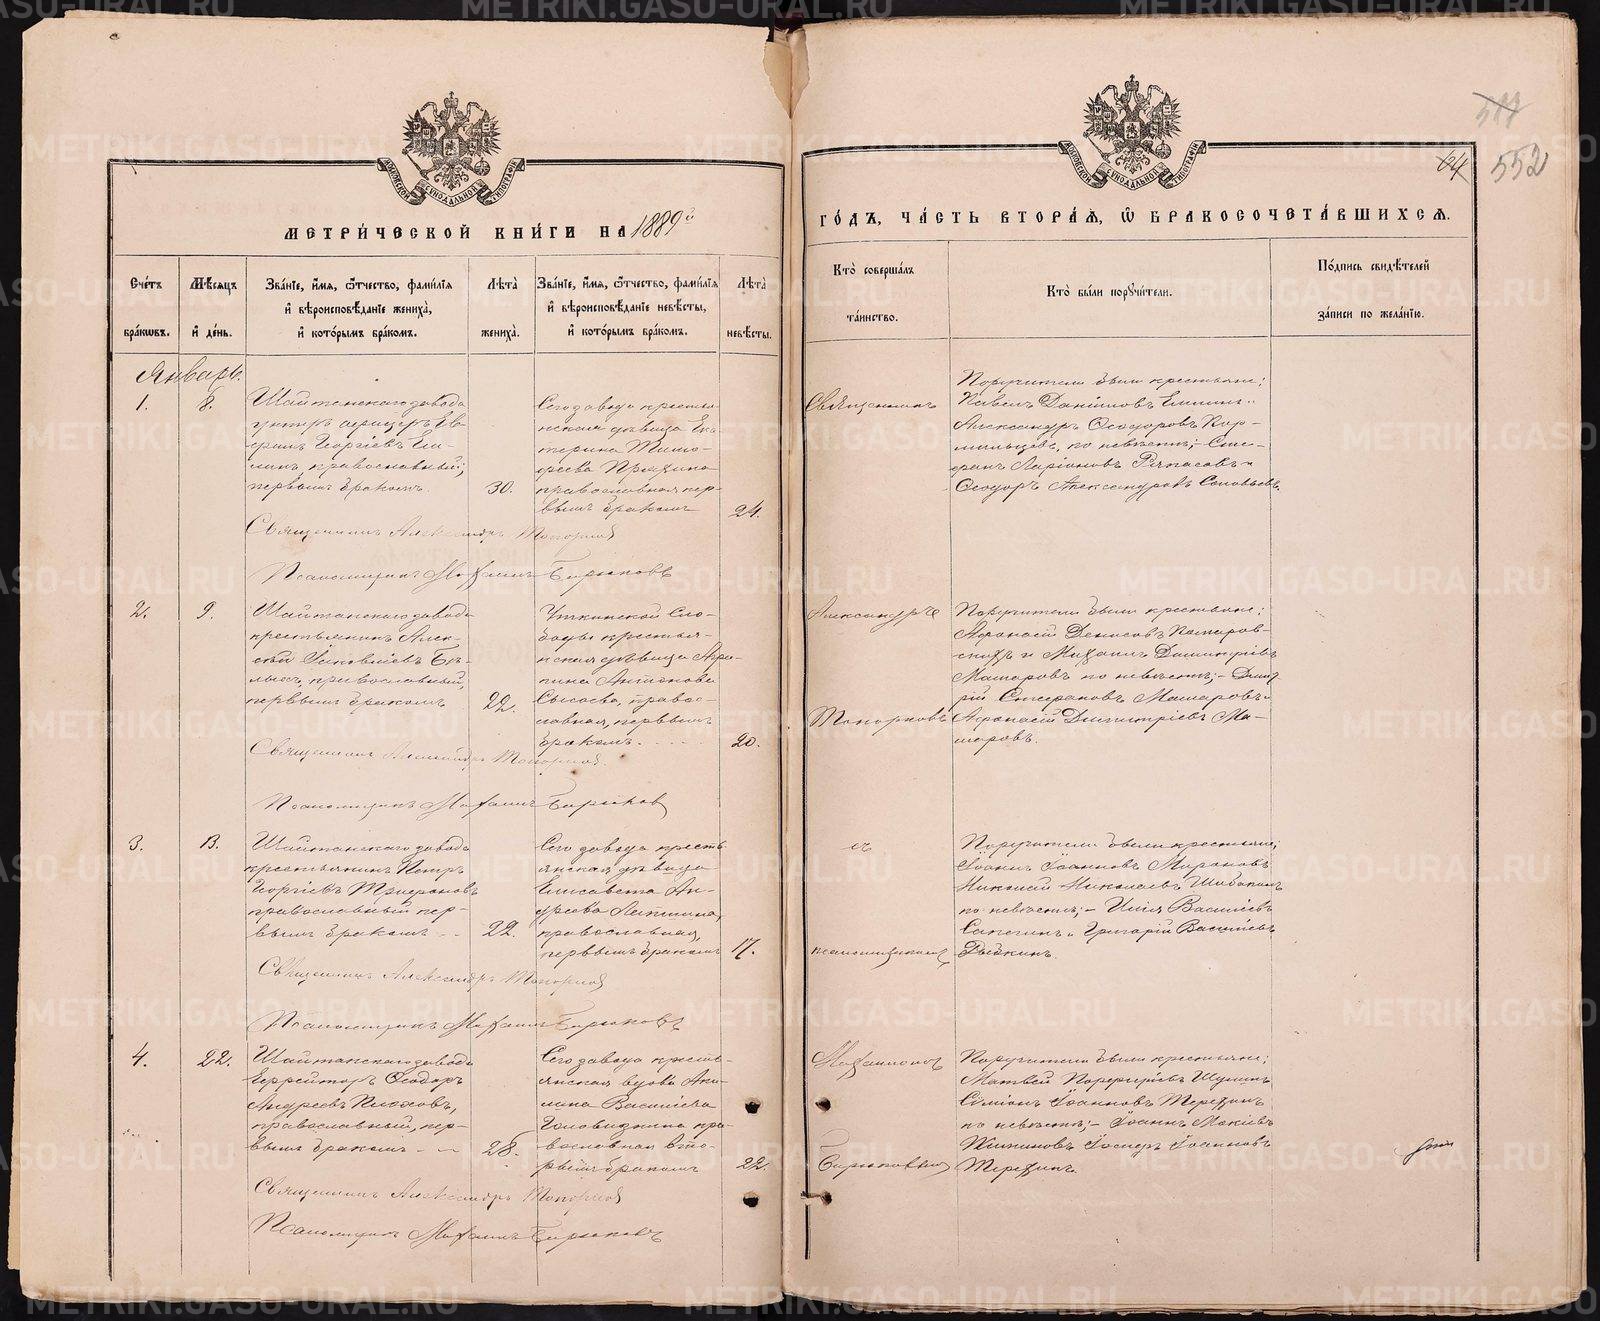 517
64
552
МОСКОВСКОЙ СѴНОДАЛЬНОЙ ТИПОГРАФІИ
МОСКОВСКОЙ СѴНОДАЛЬНОЙ ТИПОГРАФІИ
МЕТРИ́ЧЕСКОЙ КНИ́ГИ НА 1889й
ГО́ДЪ, ЧА́СТЬ ВТОРА́Я, Ѿ БРАКОСОЧЕТА́ВШИХСЯ.
Сче́тъ бра́кѡвъ.
Мѣ́сяцъ и҆ де́нь.
Зва́ніе, и҆́мя, ѻ҆́тчество, фами́лїя
и҆ вѣроисповѣ́даніе жениха̀,
и҆ кото́рымъ бра́комъ.
Лѣ́та жениха̀.
Зва́ніе, и҆́мя, ѻ҆́тчество, фами́лїя
и҆ вѣроисповѣ́даніе невѣ́сты,
и҆ кото́рымъ бра́комъ.
Лѣ́та невѣ́сты.
Кто̀ соверша́лъ
та́инство.
Кто̀ бы́ли порꙋчи́тели.
По́дпись свидѣ́телей
за́писи по жела́нію.
Январь.
1.
8.
Шайтанскаго завода
унтеръ офицеръ
Георгіевъ
православный;
первымъ бракомъ
30.
Сего завода кресть-
янская дѣвица Ека-
терина Тимо-
феева Пряхина
православная пер-
вымъ бракомъ
24.
Священникъ
Поручители были крестьяне:
Павелъ Даніиловъ
Александръ Ѳеодоровъ Кор-
мильцевъ, по невѣстѣ; – Сте-
фанъ Ларіоновъ
Ѳеодоръ Александровъ Соловьевъ.
Священникъ Александръ Топорковъ
Псаломщикъ Михаилъ Бирюковъ
2.
9.
Шайтанскаго завода
крестьянинъ Алек-
сѣй Іаковлевъ Бѣ-
лыхъ, православный,
первымъ бракомъ
22.
Уткинской Сло-
боды крестья-
нская дѣвица Агри-
пина Антонова
Сысоева, право-
славная, первымъ
бракомъ
20.
Александръ
Топорковъ
Поручители были крестьяне:
Афанасій Денисовъ Комаров-
скихъ и Михаилъ Димитріевъ
Машаровъ по невѣстѣ; – Димит-
рій Стефановъ Машаровъ и
Афанасій Димитріевъ Ма-
шаровъ.
Священникъ Александръ Топорковъ
Псаломщикъ Михаилъ Бирюковъ
3.
13.
Шайтанскаго завода
крестьянинъ Петръ
Георгіевъ Трифоновъ
православный пер-
вымъ бракомъ
22.
Сего завода кресть-
янская дѣвица
Елисавета Ан-
дреева Лапшина,
православная,
первымъ бракомъ
17.
съ
псаломщикомъ
Поручители были крестьяне;
Іоаннъ Іоанновъ Мироновъ
Николай Николаевъ
по невѣстѣ; – Илія Василіевъ
Сапегинъ и Григорій Василіевъ
Дыбкинъ.
Священникъ Александръ Топорковъ
Псаломщикъ Михаилъ Бирюковъ
4.
22.
Шайтанскаго завода
Ефрейторъ Ѳеодоръ
Андреевъ Пиоховъ,
православный, пер-
вымъ бракомъ
28.
Сего завода кресть-
янская вдова Аку-
лина Василіева
Головизнина пра-
вославная вто-
рымъ бракомъ
22.
Михаиломъ
Бирюковымъ
Поручители были крестьяне:
Матвей Порфиріевъ Шулинъ
Симіонъ Іоанновъ Терехинъ
по невѣстѣ; – Іоаннъ Мокіевъ
Іоанновъ
Терехинъ.
Священникъ Александръ Топорковъ
Псаломщикъ Михаилъ Бирюковъ
METRIKI.GASO-URAL.RU